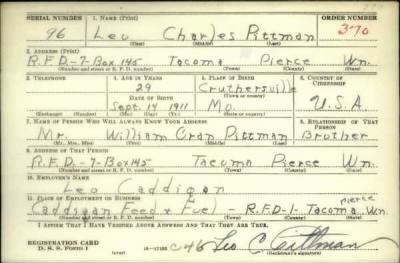 SERIAL NUMBER 1. NAME (Print) ORDER NUMBER
96 Leo Charles Pittman 370
(First) (Middle) (Last)
2. ADDRESS (Print)
R.F.D-7-Box 145 Tacoma Pierce Wn.
(Number and street or R. F. D. number) (Town) (County) (State)
3. TELEPHONE 4. AGE IN YEARS 5. PLACE OF BIRTH 6. COUNTRY OF CITIZENSHIP
29 Cruthersville
DATE OF BIRTH (Town or county)
Sept. 14 1911 Mo. U.S.A.
(Exchange) (Number) (Mo.) (Day) (Yr.) (State or country)
7. NAME OF PERSON WHO WILL ALWAYS KNOW YOUR ADDRESS 8. RELATIONSHIP OF THAT PERSON
Mr. William Oran Pittman Brother
(Mr., Mrs., Miss) (First) (Middle) (Last)
9. ADDRESS OF THAT PERSON
R.F.D-7-Box 145 Tacoma Pierce Wn.
(Number and street or R. F. D. number) (Town) (County) (State)
10. EMPLOYER'S NAME
Leo Caddigan
11. PLACE OF EMPLOYMENT OR BUSINESS Pierce
Caddigan Feed + Fuel - R.F.D-1- Tacoma, Wn.
(Number and street or R. F. D. number) (Town) (County) (State)
I AFFIRM THAT I HAVE VERIFIED ABOVE ANSWERS AND THAT THEY ARE TRUE.
REGISTRATION CARD
D. S. S. Form 1 (over) 16-17105 Leo C. Pittman
(Registrant's signature)